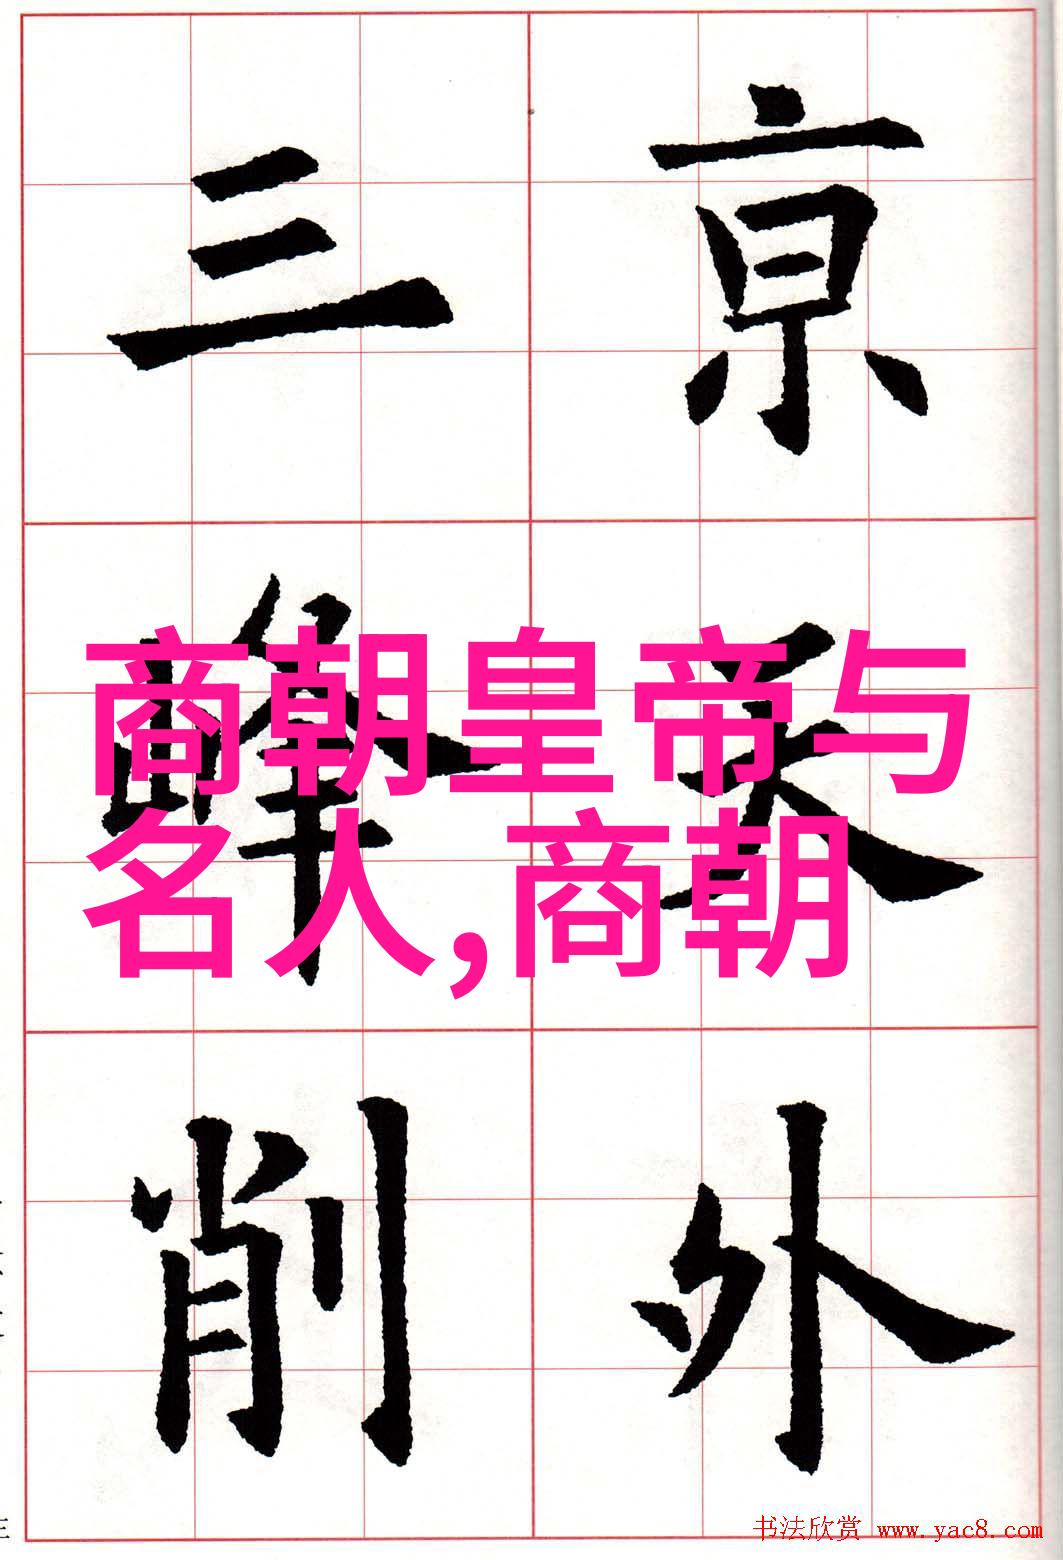 亰天外
三峰削
商朝皇帝与
名人,商朝
书法欣赏 www.yac8.com